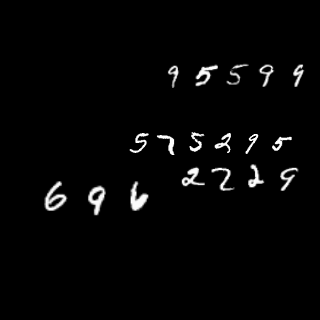 95599
575295
2229
696